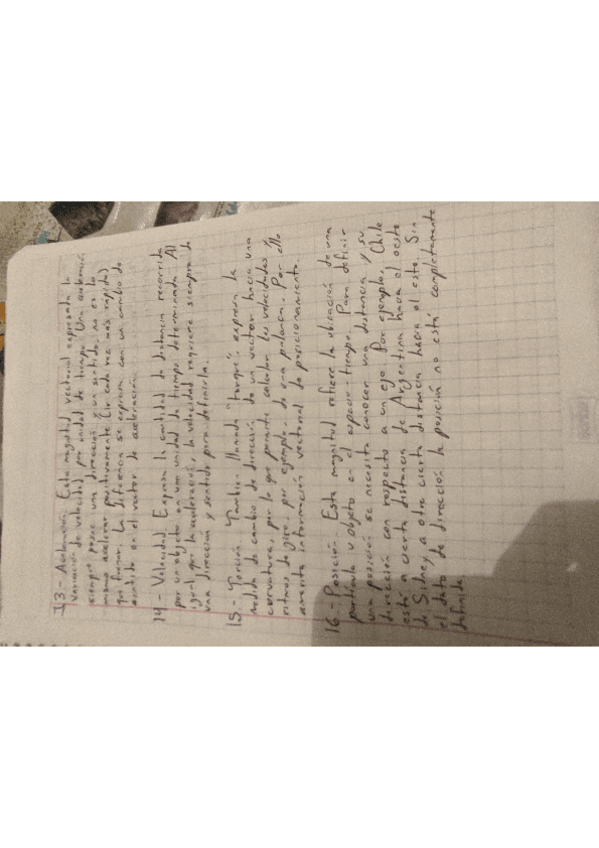 13.- Aceleración. Esta magnitud vectorial expresa la
variación de velocidad por unidad de tiempo. Una aceleración
siempre posee una dirección y un sentido, no es lo
mismo acelerar positivamente (ir cada vez más rápido)
que frenar. La diferencia se expresa con un cambio de
sentido en el vector de aceleración.
14.- Velocidad. Expresa la cantidad de distancia recorrida
por un objeto en una unidad de tiempo determinada. Al
igual que la aceleración, la velocidad requiere siempre de
una dirección y sentido para definirla.
15.- Torsión. También llamada "torque", expresa la
medida de cambio de dirección de un vector hacia una
curvatura, por lo que permite calcular las velocidades y
ritmos de giro, por ejemplo, de una palanca. Por ello
amerita información vectorial de posicionamiento.
16.- Posición. Esta magnitud refiere la ubicación de una
partícula u objeto en el espacio-tiempo. Para definir
una posición se necesita conocer una distancia y su
dirección con respecto a un eje. Por ejemplo, Chile
está a cierta distancia de Argentina hacia el oeste
de Sidney a otra cierta distancia hacia el este. Sin
el dato de dirección la posición no está completamente
definida.